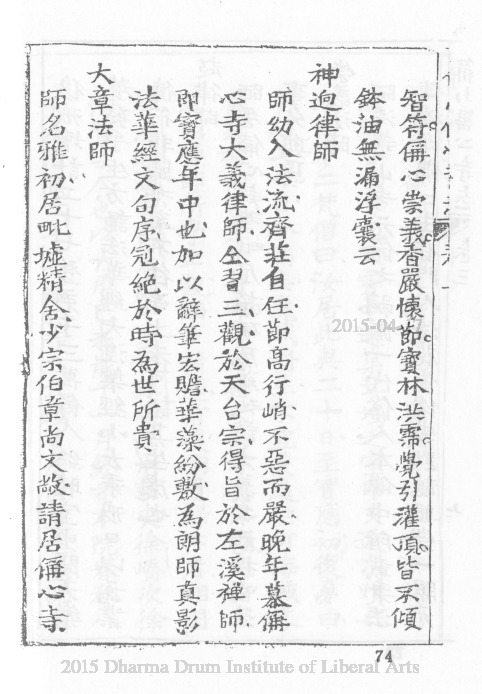 智符稱心崇義香嚴懷節寶林洪霈覺引灌頂皆不傾
鉢油無漏浮囊云
神迥律師
師幼入法流齊莊自任節高行峭不惡而嚴晚年慕稱
心寺大義律師仝習三觀於天台宗得旨於左溪禪師
即寶應年中也加以辭筆宏贍華藻紛敷為朗師真影
法華經文句序冠絕於時為世所貴
大章法師
師名雅初居毗墟精舍少宗伯章尚文敬請居稱心寺
2015-04
74
2015 Dharma Drum Institute of Liberal Arts